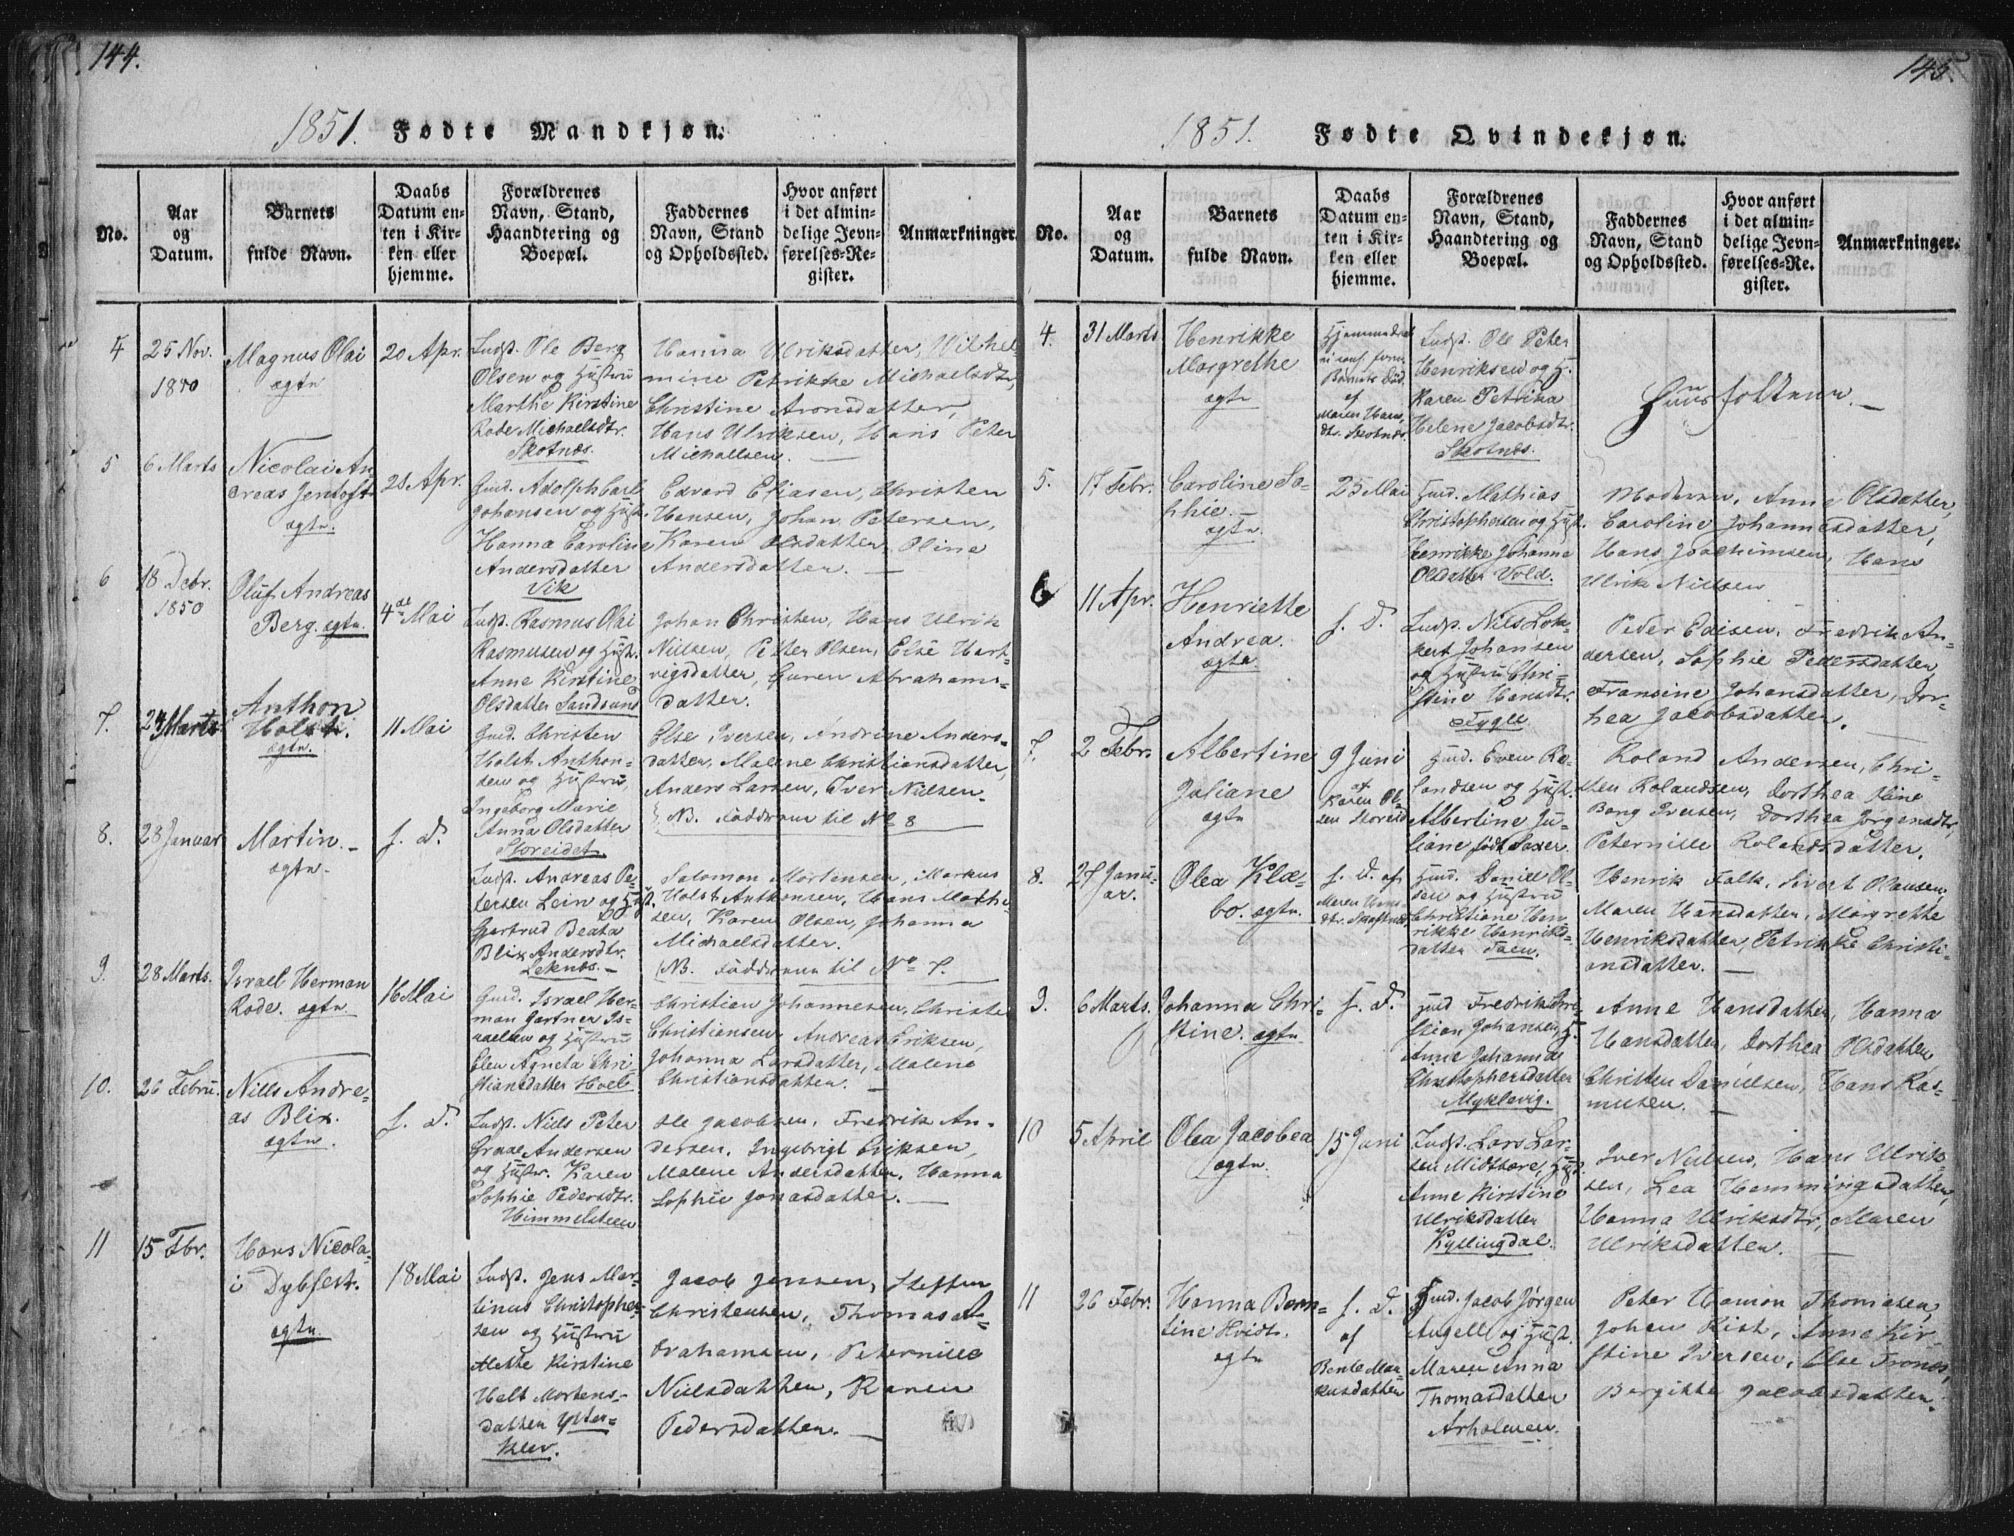 144.
1851. Fødte Mandkjøn.
No.
Aar
og
Datum.
Barnets
fulde Navn.
Daabs
Datum en-
ten i Kir-
ken eller
hjemme.
Forældrenes
Navn, Stand,
Haandtering og
Boepæl.
Faddernes
Navn, Stand
og Opholdssted.
Hvor anført
i det almin-
delige Jevn-
førelses-Re-
gister.
Anmærkninger.
4
25 Nov.
1850
Magnus Olai
ægte
20 Apr.
Indst. Ole Berg
Olsen og Hustru
Marthe Kirstine
Rode Michaelsdtr.
Skotnæs.
Hanna Ulriksdatter, Wilhel
mine Petrikke Michaelsdtr,
Christine Aronsdatter,
Hans Ulriksen, Hans Peter
Michallsen.
5
6 Marts
Nicolai An
dreas Jentoft
ægte.
20 Apr.
Gmd. Adolph Carl
Johansen og Hust.
Hanna Caroline
Andersdatter
Vik
Edvard Eliasen, Christen
Hansen, Johan Petersen,
Karen Olsdatter, Oline
Andersdatter. —
6
18 Debr.
1850
Oluf Andreas
Berg. ægte.
4de Mai
Indst. Rasmus Olai
Rasmussen og Hust.
Anne Kirstine
Olsdatter Sandsund
Johan Christen, Hans Ulrik
Nielsen, Petter Olsen, Else Hart-
vigsdatter, Guren Abrahams-
datter.
7.
24 Marts
Anthon
Holst.
ægte.
11 Mai
Gmd. Christen
Holst Anthon-
sen og Hustru,
Ingeborg Marie
Anna Olsdatter
Storeidet
Else Iversen, Andrine Anders-
datter, Malene Christiansdatter,
Anders Larsen, Iver Nielsen.
NB. Fadderne til No 8
8.
28 Januar
Martin. —
ægte.
s. D.
Indst. Andreas Pe-
tersen Lein og Hust.
Gjertrud Beata
Blix Andersdtr.
Leknæs. —
Salomon Mortensen, Markus
Holst Anthonsen, Hans Mathi-
sen, Karen Olsen, Johanna
Michaelsdatter.
NB. Fadderne til No 7.
9.
28 Marts.
Israel Herman
Rode. ægte
16 Mai
Gmd. Israel Her-
man Gartner Is-
raelsen og Hustru
Elen Agneta Chri-
stiansdatter Hoel
Christian Johannesen, Christen
Christiansen, Andreas Eriksen,
Johanna Larsdatter, Malene
Christiansdatter. —
10.
26 Febru.
Nills Andre-
as Blix.
ægte.
s. D.
Indst. Niels Peter
Graae Andersen
og Hustr. Karen
Sophie Pedersdtr.
Himmelsteen
Ole Jacobsen, Fredrik An-
dersen, Ingebrigt Eriksen,
Malene Andersdatter, Hanna
Sophie Jonasdatter. —
11
15 Fbr.
Hans Nicola-
i Dybfest.
ægte
18 Mai
Indst. Jens Mar-
tinus Christopher-
sen og Hustru
Mette Kirstine
Helt Mortens-
datter Ytter-
klev.
Jacob Jensen, Steffen
Christensen, Thomas A-
brahamsen, Peternille
Nielsdatter, Karen
Pedersdatter. —
145.
1851. Fødte Qvindekjøn.
No.
Aar
og
Datum.
Barnets
fulde Navn.
Daabs
Datum en-
ten i Kir-
ken eller
hjemme.
Forældrenes
Navn, Stand,
Haandtering og
Boepæl.
Faddernes
Navn, Stand
og Opholdssted.
Hvor anført
i det almin-
delige Jevn-
førelses-Re-
gister.
Anmærkninger.
4.
31 Marts
Henrikke
Margrethe
ægte
Barnets Død.
af
Maren Hans
dtr. Skotnæs.
Indst. Ole Peter
Henriksen og H.
Karen Petrika
Helene Jacobsdtr.
Skotnæs.
Huusfolkene. —
5.
17 Febr.
Caroline So-
phie.
ægte.
25 Mai
Gmd. Mathias
Christophersen og Hust.
Henrikke Johanna
Olsdatter Vold.
Moderen, Anne Olsdatter,
Caroline Johannesdatter,
Hans Joachimsen, Hans
Ulrik Nielsen
6
11 Apr.
Henriette
Andrea.
ægte.
s. D.
Indst. Nils Lok-
kert Johansen
og Hustru Chri-
stine Hansdtr.
Fygle
Peder Edisen, Fredrik An-
dersen, Sophie Pedersdatter,
Fransine Johansdatter, Dor-
thea Jacobsdatter.
7.
2 Febr.
Albertine
Juliane
ægte
9 Juni
af
Karen Ol-
sen Storeid
Gmd. Even Ro-
landsen og Hust.
Albertine Ju-
liane født Saxer.
Roland Andersen, Chri-
sten Rolandsen, Dorthea Oline
Bang Iversen, Dorthea Jørgensdtr,
Peternille Rolandsdatter.
8.
27 Janu-
ar.
Olea Klæ-
bo. ægte.
s. D. af
Maren Hans-
dtr. Skotnæs
Gmd. Daniel Ol-
sen og Hustru
Christiane Hen-
rikke Henriks-
datter Faen.
Henrik Falk, Sivert Olausen,
Maren Hansdatter, Margrethe
Henriksdatter, Petrikke Christi-
ansdatter. —
9.
6 Marts.
Johanna Chri-
stine. ægte
s. D.
Gmd Fredrik Chri-
stian Johansen, H.
Anne Johanna
Christophersdatter
Myklevig.
Anne Hansdatter, Hanna
Hansdatter, Dorthea Olsdatter
Christen Danielsen, Hans Ras-
musen. —
10
5 April
Olea Jacobea
ægte.
15 Juni
Indst. Lars Lar-
sen Midtsore, Hust.
Anne Kirstine
Ulriksdatter
Kyllingdal.
Iver Nielsen, Hans Ulrik-
sen, Lea Hemmingsdatter,
Hanna Ulriksdtr, Maren
Ulriksdatter. —
11
26 Febr.
Hanna Bern-
tine Hvidt.
ægte
s. D.
af
Bente Mar
kusdatter
Gmd. Jacob Jørgen
Angell og Hust.
Maren Anna
Thomasdatter
Arholmen.
Peter Hamon Thomasen,
Johan Kist, Anne Kir-
stine Iversen, Else Trons,
Bergitte Jacobsdatter.